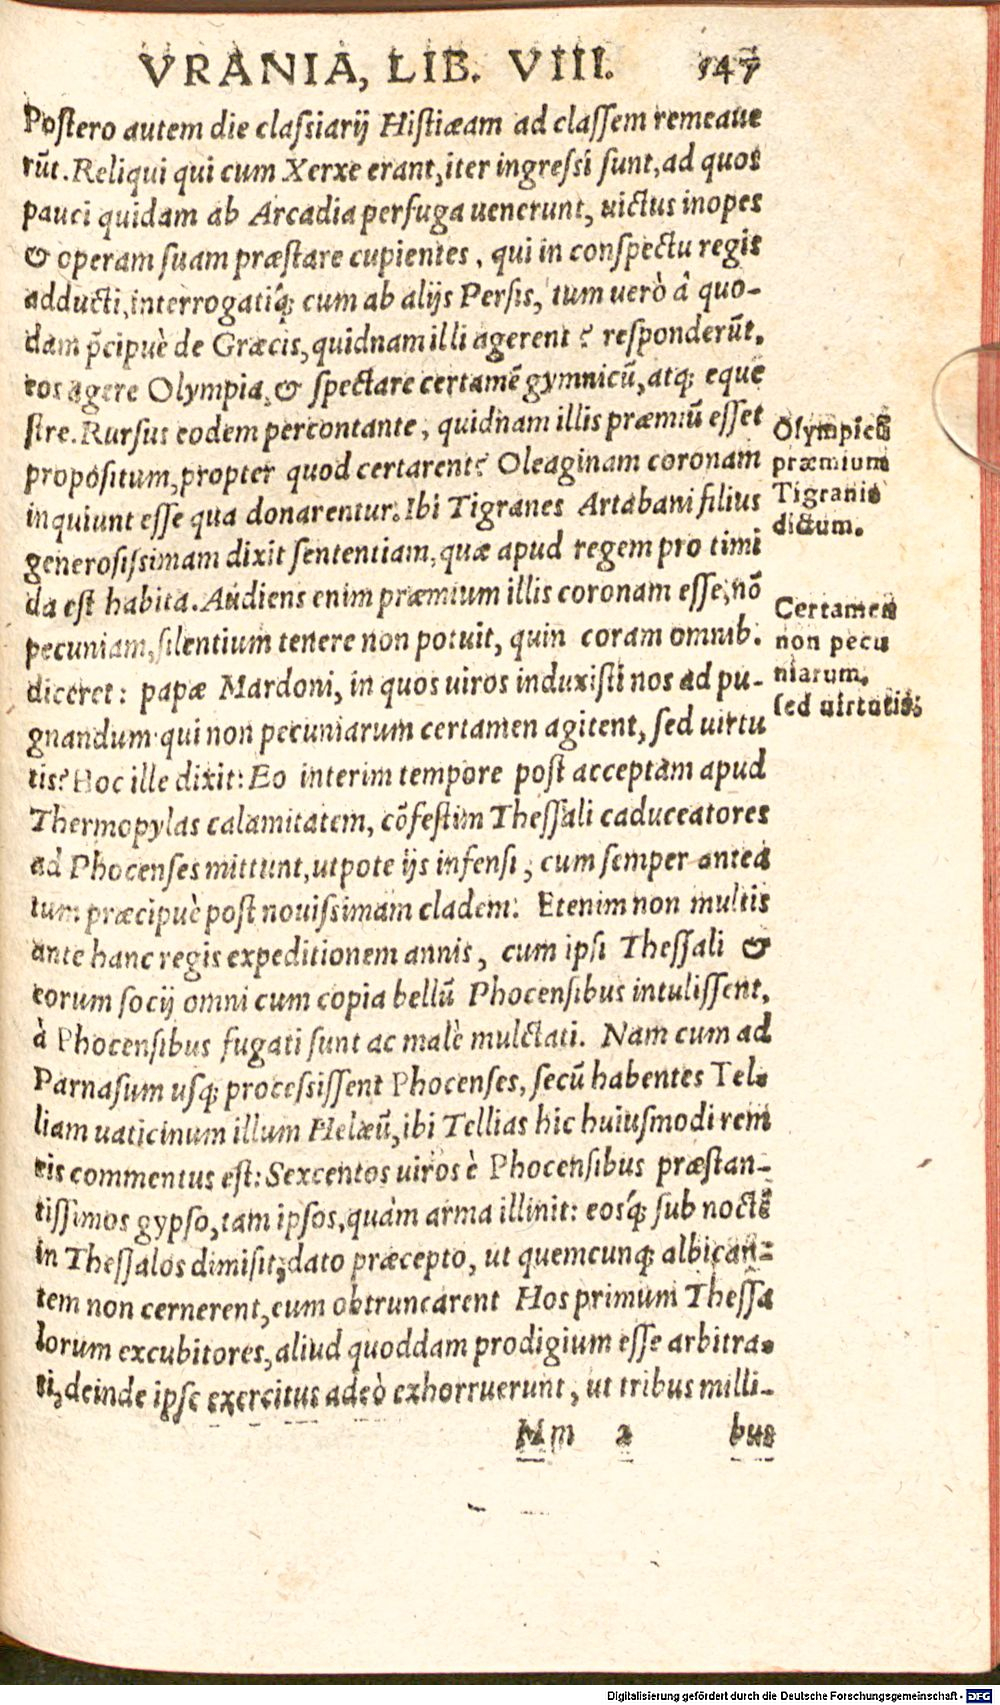 VRANIA, LIB. VIII. 547
Postero autem die claſsiarij Hiſtiæam ad claſſem remeaue
rūt. Reliqui qui cum Xerxe erant, iter ingreſsi ſunt, ad quos
pauci quidam ab Arcadia perfuga uenerunt, uictus inopes
& operam ſuam præſtare cupientes, qui in conſpectu regis
adducti, interrogatiq́; cum ab alijs Perſis, tum uerò â quo-
dam p̄cipuè de Græcis, quidnam illi agerent? reſponderūt.
eos agere Olympia, & ſpectare certamē gymnicū, atq; eque
ſtre. Rurſus eodem percontante, quidnam illis præmiū eſſet
propoſitum, propter quod certarent? Oleaginam coronam
inquiunt eſſe qua donarentur. Ibi Tigranes Artabani filius
generoſiſsimam dixit ſententiam, quæ apud regem pro timi
da eſt habita. Audiens enim præmium illis coronam eſſe, nō
pecuniam, ſilentium tenere non potuit, quin coram omnib.
diceret: papæ Mardoni, in quos uiros induxiſti nos ad pu-
gnandum qui non pecuniarum certamen agitent, ſed uirtu
tis? Hoc ille dixit: Eo interim tempore poſt acceptam apud
Thermopylas calamitatem, cōfeſtim Theſſali caduceatores
ad Phocenſes mittunt, utpote ijs infenſi, cum ſemper antea
tum præcipuè poſt nouiſsimam cladem. Etenim non multis
ante hanc regis expeditionem annis, cum ipſi Theſſali &
eorum ſocij omni cum copia bellū Phocenſibus intuliſſent,
à Phocenſibus fugati ſunt ac malè mulctati. Nam cum ad
Parnaſum uſq; proceſsiſſent Phocenſes, ſecū habentes Tel-
liam uaticinum illum Helæū, ibi Tellias hic huiuſmodi rem
eis commentus eſt: Sexcentos uiros è Phocenſibus præſtan-
tiſſimos gypſo, tam ipſos, quàm arma illinit: eosq́; ſub noctē
in Theſſalos dimiſit, dato præcepto, ut quemcunq; albican-
tem non cernerent, eum obtruncarent Hos primum Theſſa
lorum excubitores, aliud quoddam prodigium eſſe arbitra-
ti, deinde ipſe exercitus adeò exhorruerunt, ut tribus milli-
Mm 2 bus
Olympicū
præmium
Tigranis
dictum.
Certamen
non pecu
niarum,
ſed uirtutis.
Digitalisierung gefördert durch die Deutsche Forschungsgemeinschaft - DFG